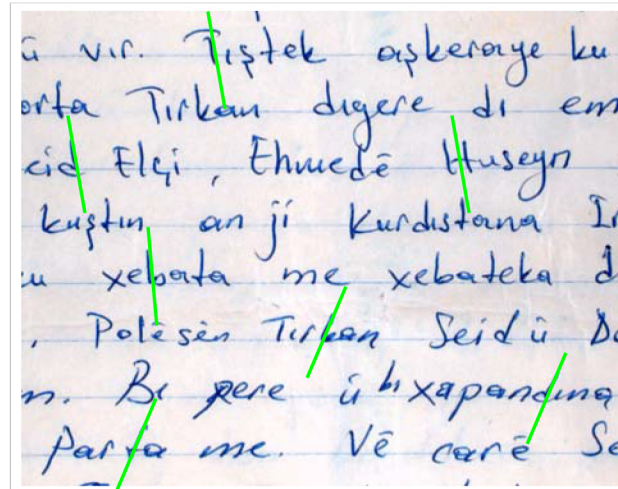 û vır. Tıştek aşkeraye ku
orta Tırkan dıgere dı em
cid Elçi, Ehmedê Huseyn
kuştın an ji Kurdıstana Ir
u xebata me xebateka d
, Polêsên Tırkan Seid û Da
n. Bı pere û bı xapandına
Partia me. Vê carê Se